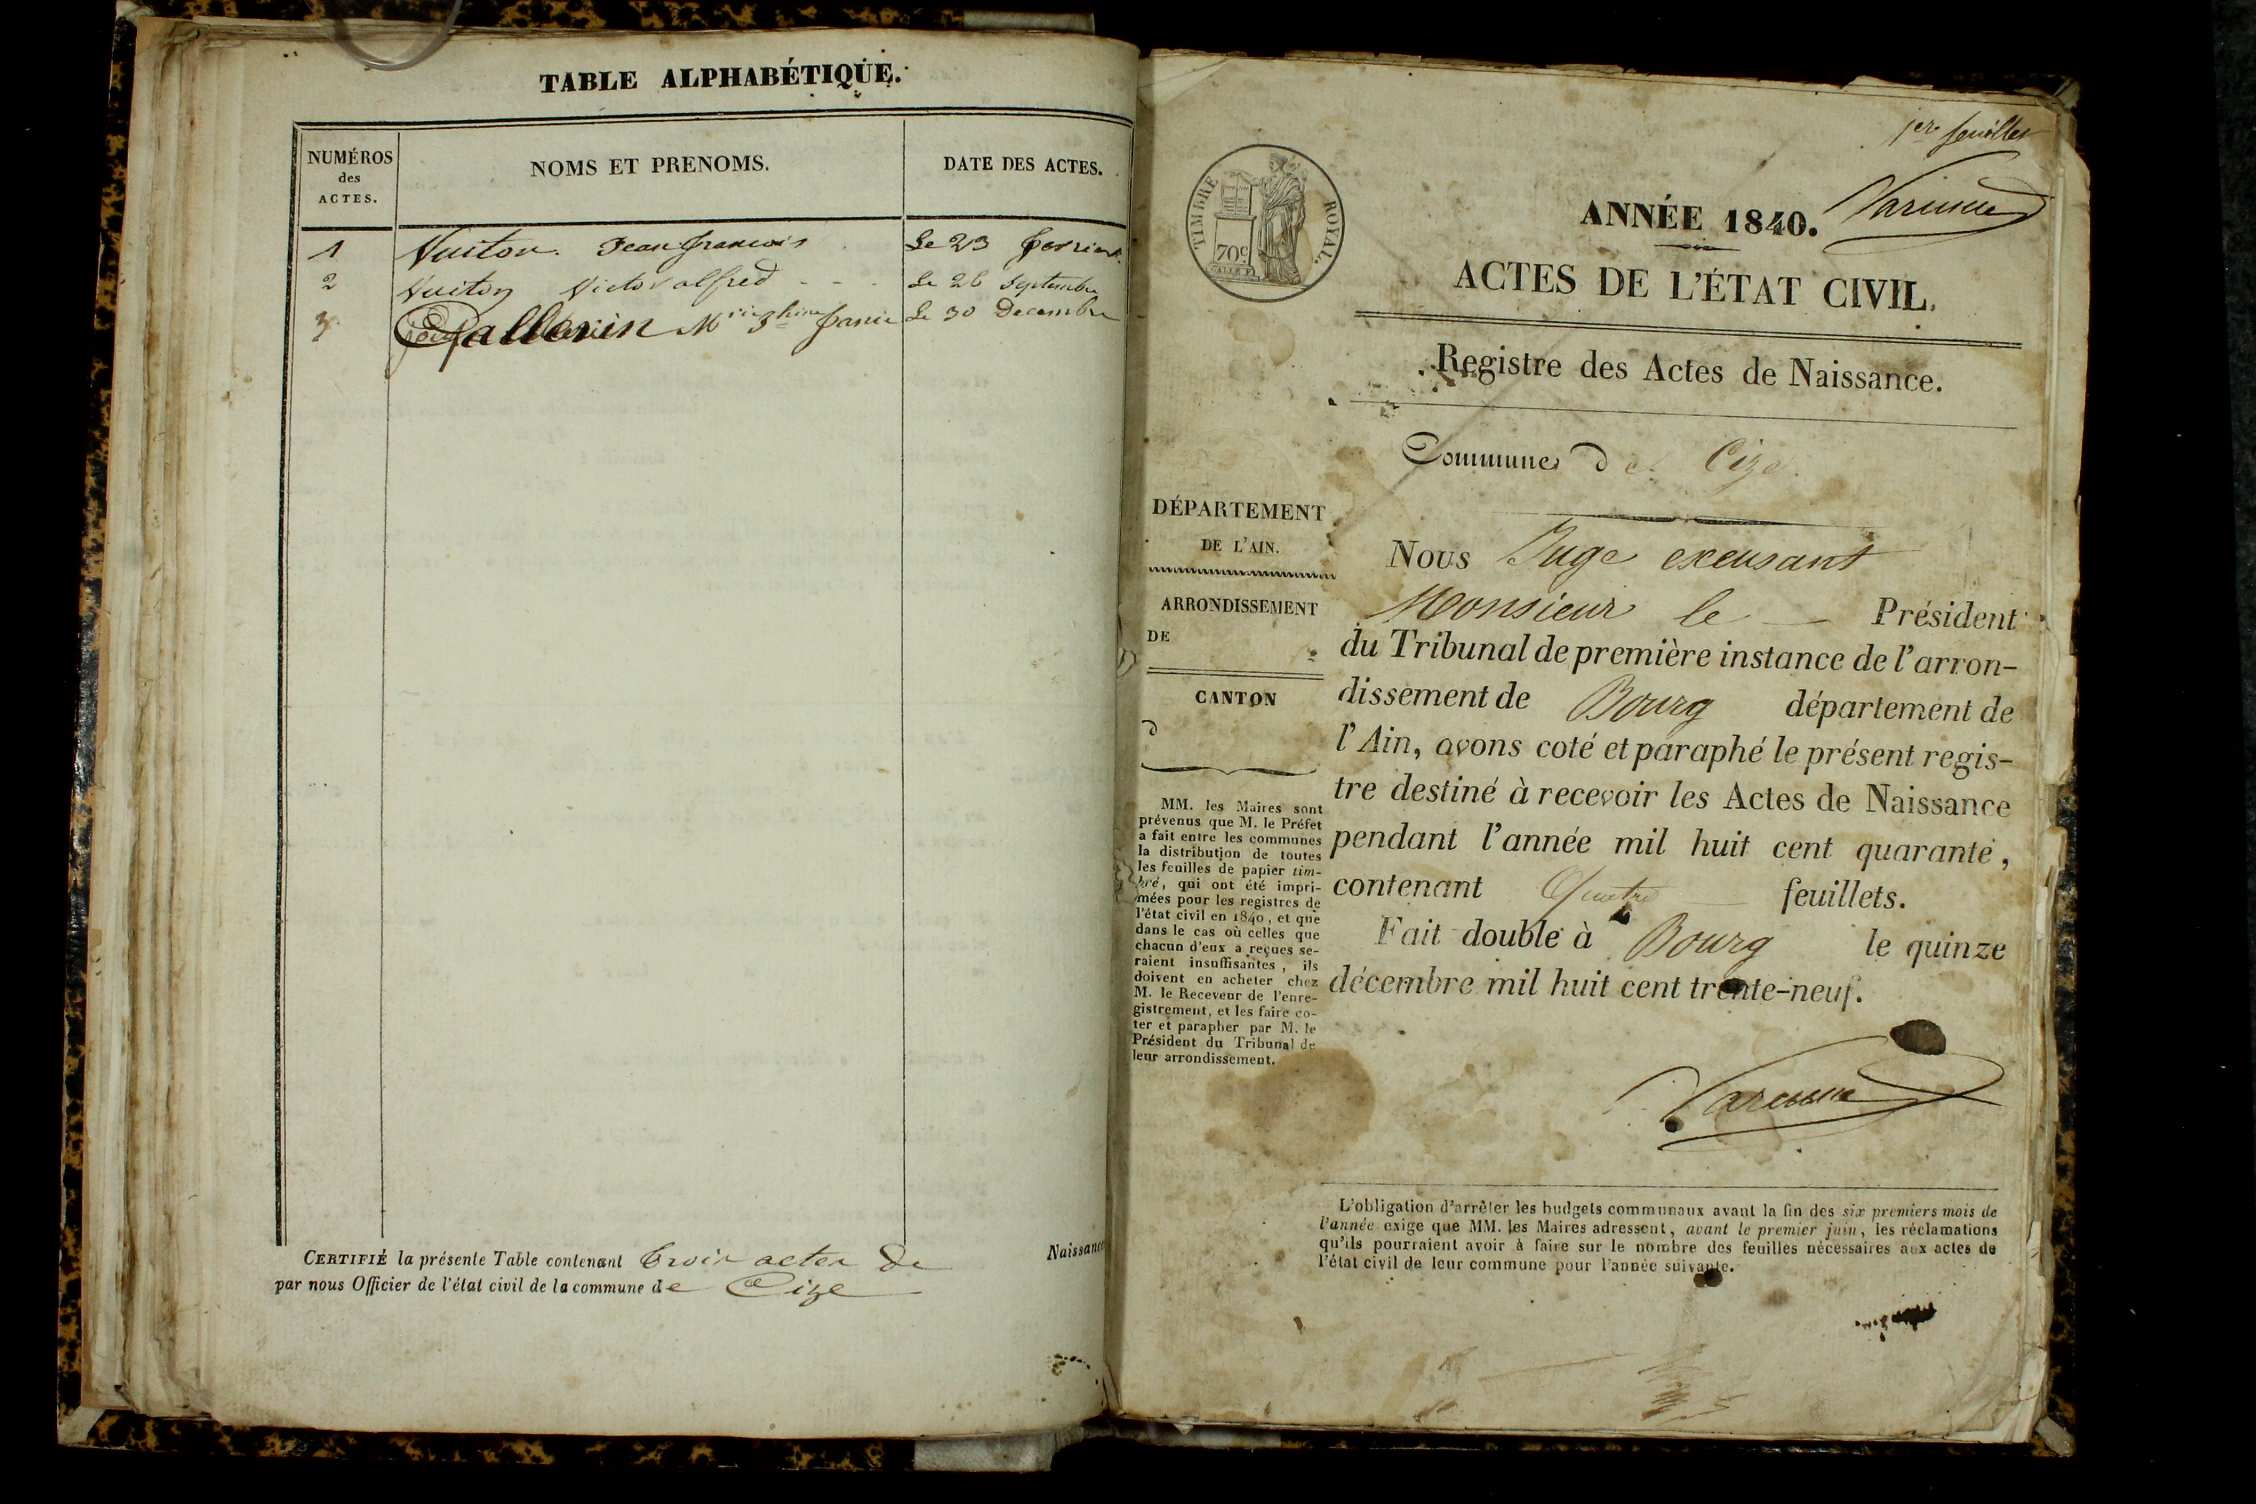 TABLE ALPHABÉTIQUE.
NUMÉROS
des
ACTES.
NOMS ET PRENOMS.
DATE DES ACTES.
1 Vuiton. Jean françois Le 23 fevrier.
2 Vuiton Victor alfred - - - Le 26 Septembre
3 Gallerin M rie 3 hine fanie Le 30 Decembre
CERTIFIÉ la présente Table contenant trois actes de Naissance
par nous Officier de l'état civil de la commune de Cize
1er feuillet
TIMBRE ROYAL.
70c
ANNÉE 1840.
ACTES DE L'ÉTAT CIVIL.
Registre des Actes de Naissance.
Commune de Cize
DÉPARTEMENT
DE L'AIN.
ARRONDISSEMENT
DE
CANTON
d
MM. les Maires sont
prévenus que M. le Préfet
a fait entre les communes
la distribution de toutes
les feuilles de papier tim-
bré, qui ont été impri-
mées pour les registres de
l'état civil en 1840, et que
dans le cas où celles que
chacun d'eux a reçues se-
raient insuffisantes, ils
doivent en acheter chez
M. le Receveur de l'enre-
gistrement, et les faire co-
ter et parapher par M. le
Président du Tribunal de
leur arrondissement.
Nous Juge excusant
Monsieur le — Président
du Tribunal de première instance de l'arron-
dissement de Bourg département de
l'Ain, avons coté et paraphé le présent regis-
tre destiné à recevoir les Actes de Naissance
pendant l'année mil huit cent quarante,
contenant Quatre feuillets.
Fait double à Bourg le quinze
décembre mil huit cent trente-neuf.
L'obligation d'arrêter les budgets communaux avant la fin des six premiers mois de
l'année exige que MM. les Maires adressent, avant le premier juin, les réclamations
qu'ils pourraient avoir à faire sur le nombre des feuilles nécessaires aux actes de
l'état civil de leur commune pour l'année suivante.